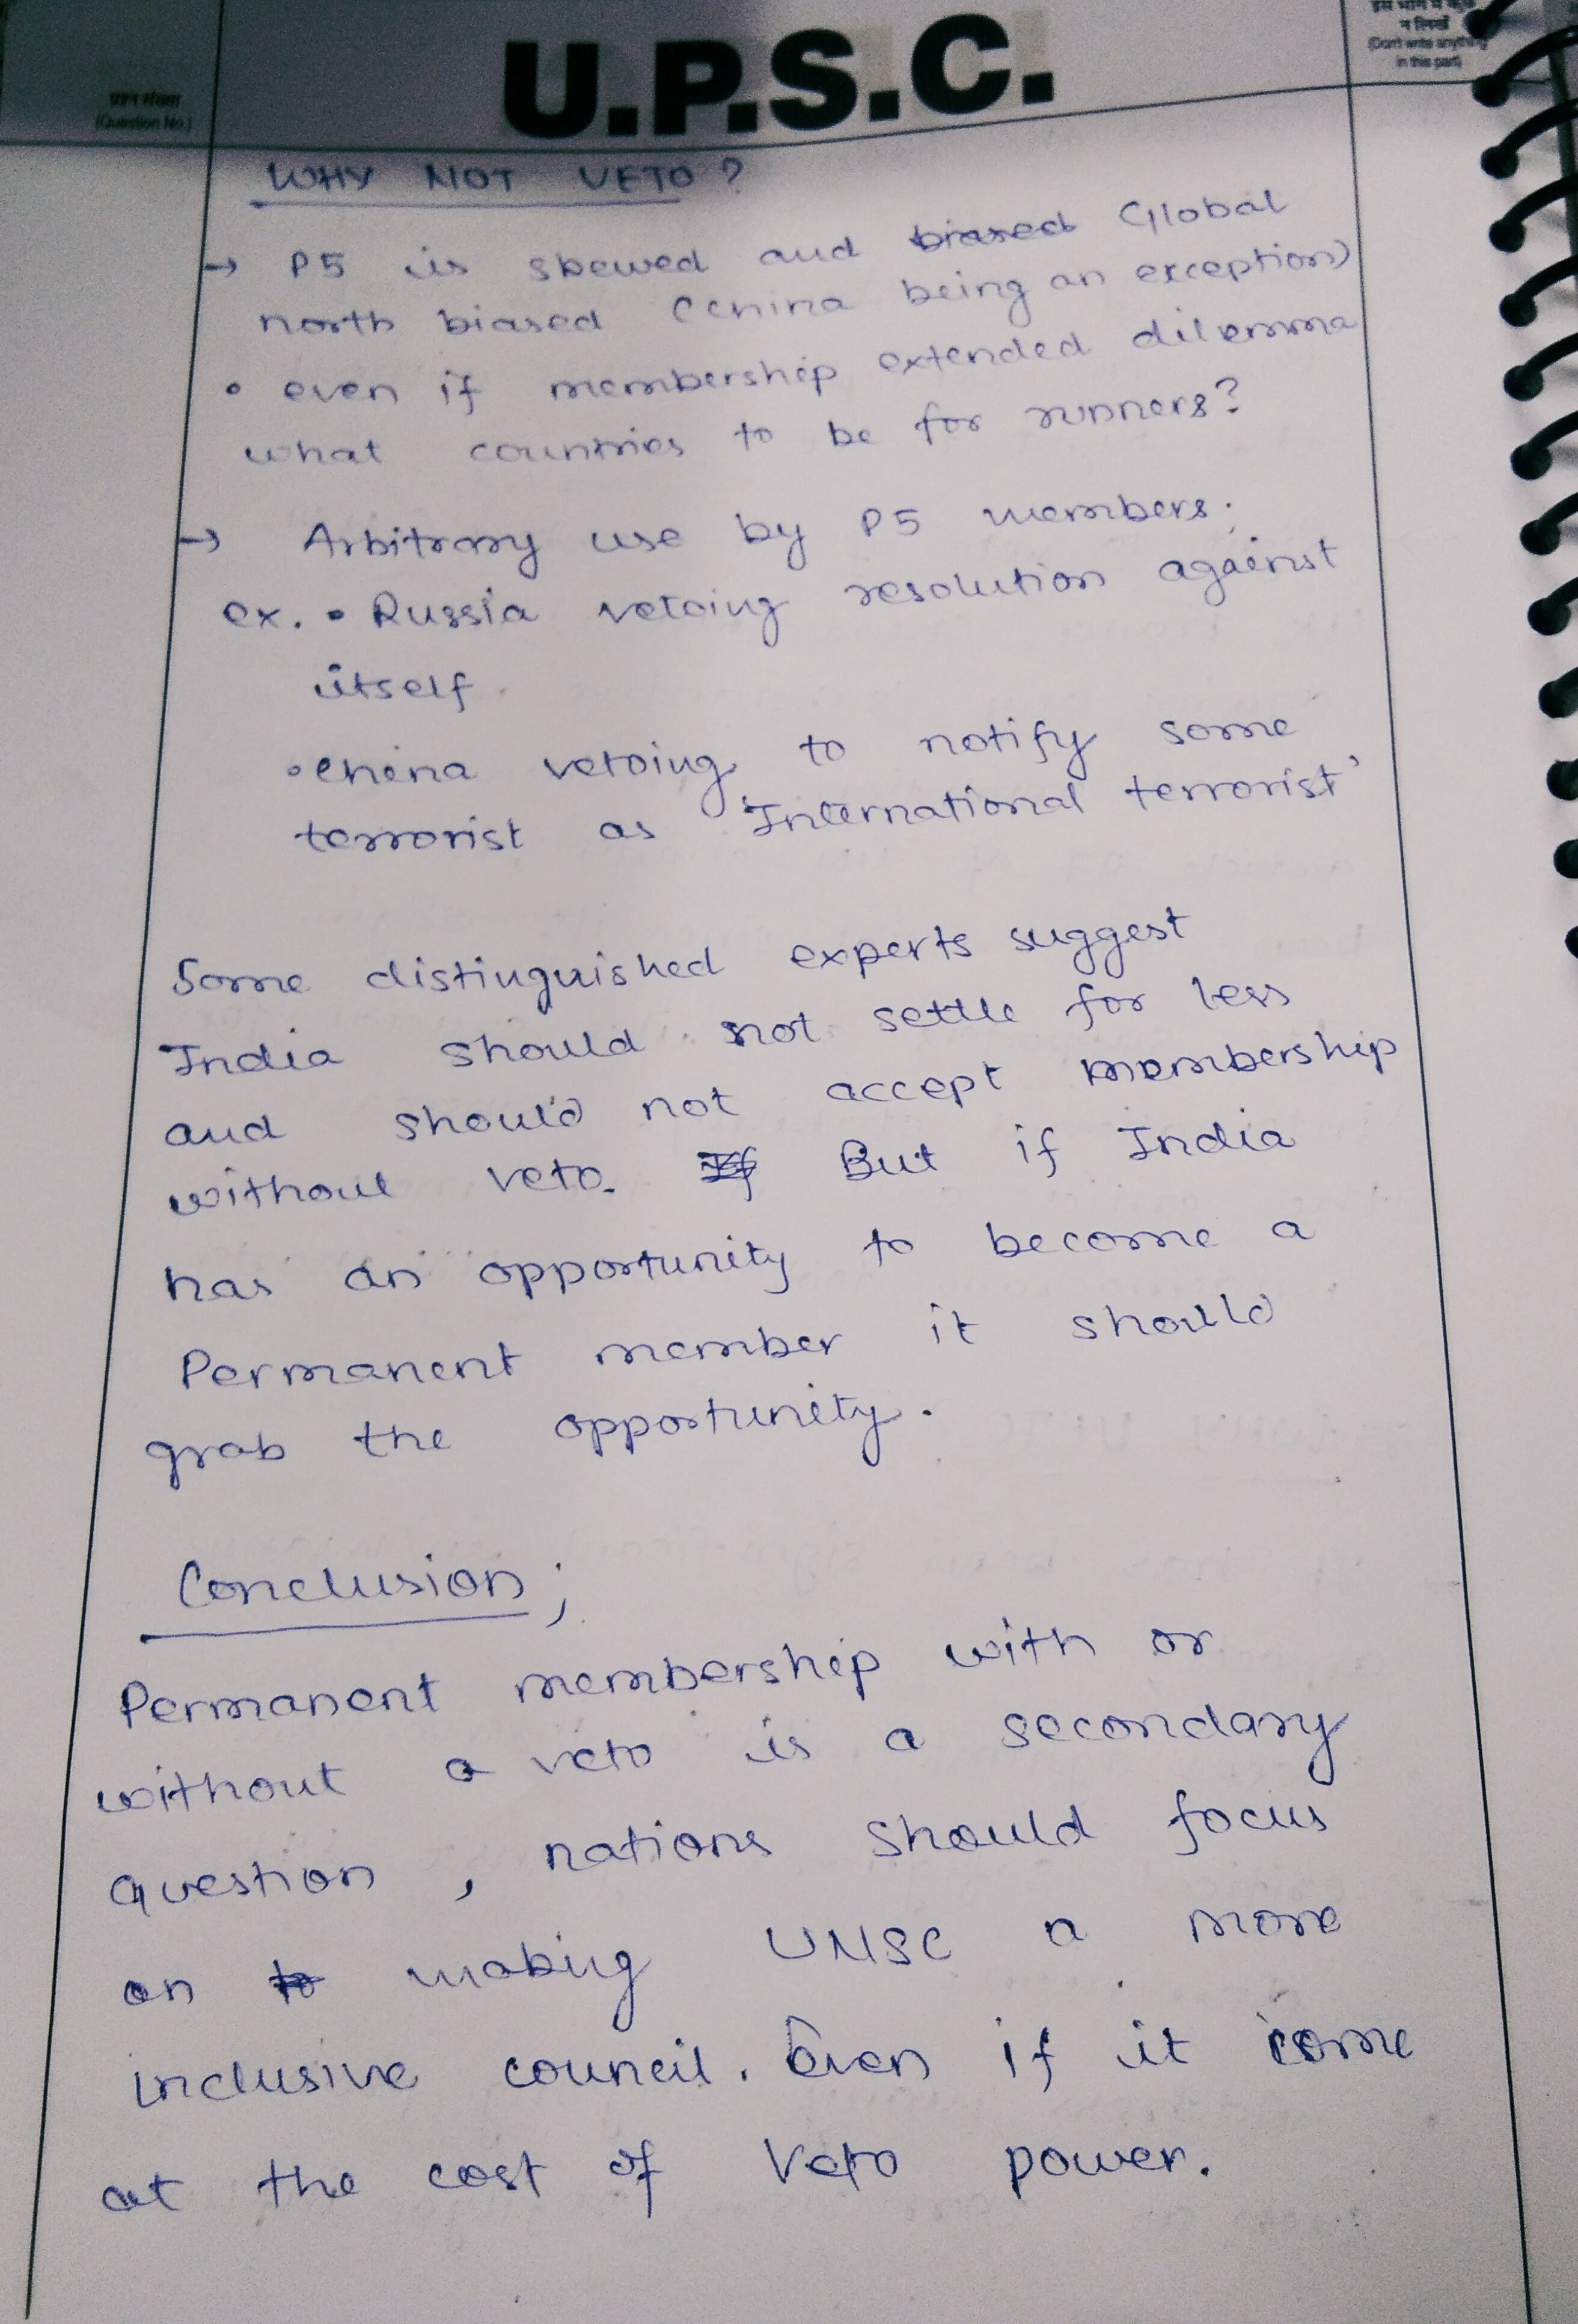 U.P.S.C.
(Question No.)
(Don't write anything
in this part)
WHY NOT VETO ?
→ P5 is skewed and biased Global
north biased (China being an exception)
• even if membership extended dilemma
what countries to be for runners?
→ Arbitrary use by P5 members;
ex. • Russia vetoing resolution against
itself.
• China vetoing to notify some
terrorist as 'International terrorist'
Some distinguished experts suggest
India should not settle for less
and should not accept membership
without veto. If But if India
has an opportunity to become a
Permanent member it should
grab the opportunity.
Conclusion ;
Permanent membership with or
without a veto is a secondary
question , nations should focus
on to making UNSC a more
inclusive council. Even if it come
at the cost of Veto power.